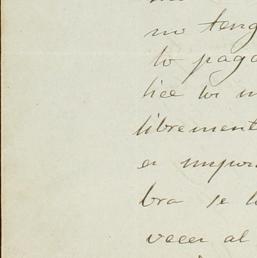 no teng
lo paga
hice los m
librement
er impor
bra se h
vecer al